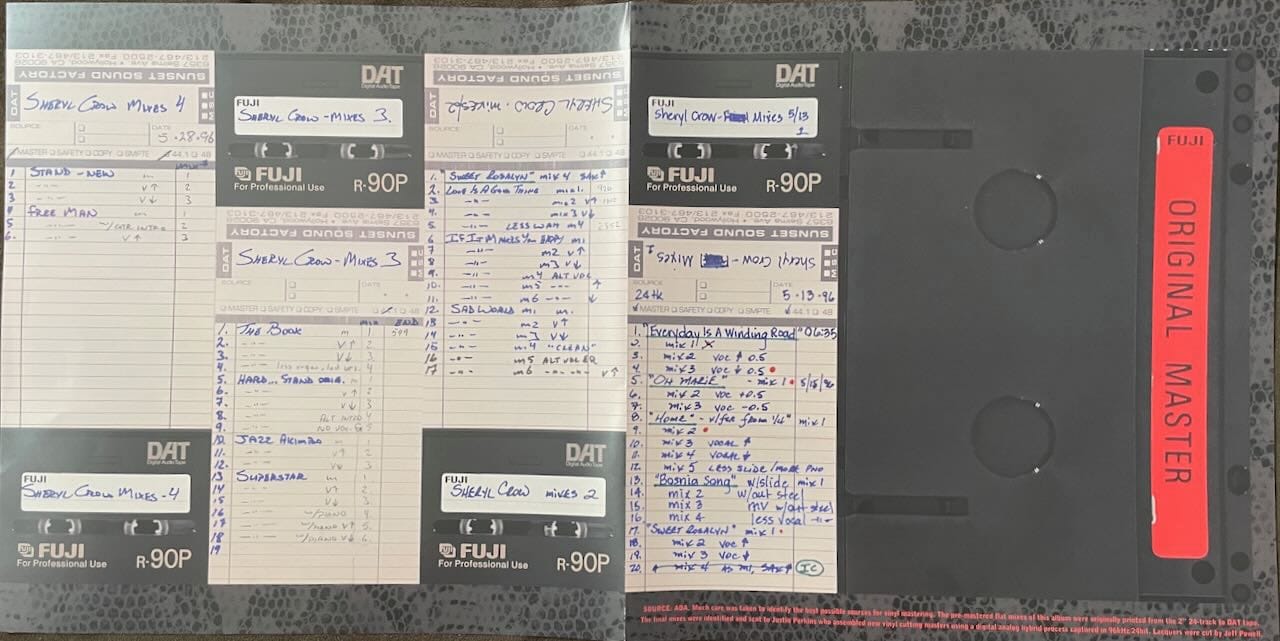 6357 Selma Ave. • Hollywood, CA 90028
213/467-2500 Fax 213/467-3103
SUNSET SOUND FACTORY
DAT
SHERYL CROW MIXES 4
MSC
SOURCE
DATE
5.28.96
MASTER SAFETY COPY SMPTE 44.1 48
1 STAND - NEW m 1
2 -"- V↑ 2
3 -"- V↓ 3
4 FREE MAN m 1
5 -"- w/GTR INTRO 2
6. -"- V↑ 3
FUJI
SHERYL CROW MIXES - 4
DAT
Digital Audio Tape
FUJI
For Professional Use
R-90P
DAT
Digital Audio Tape
FUJI
SHERYL CROW - MIXES 3.
FUJI
For Professional Use
R-90P
6357 Selma Ave. • Hollywood, CA 90028
213/467-2500 Fax 213/467-3103
SUNSET SOUND FACTORY
DAT
SHERYL CROW - MIXES 3
MSC
SOURCE
DATE
MASTER SAFETY COPY SMPTE 44.1 48
mix END
1. THE BOOK m 1 599
2. -"- V↑ 2
3. -"- V↓ 3.
4. -"- less 4
5. HARD... STAND ORIG. m 1
6. -"- V↑ 2
7. -"- V↓ 3
8. -"- ALT INTRO 4
9. -"- NO VOC 5
10. JAZZ AKIMBO m 1
11. -"- V↑ 2
12. -"- V↓ 3
13 SUPERSTAR m 1
14 -"- V↑ 2
15 -"- V↓ 3.
16 -"- w/PIANO 4.
17 -"- w/PIANO V↑ 5.
18 -"- w/PIANO V↓ 6.
19
6357 Selma Ave. • Hollywood, CA 90028
213/467-2500 Fax 213/467-3103
SUNSET SOUND FACTORY
DAT
SHERYL CROW. mixes/2
MSC
SOURCE
DATE
MASTER SAFETY COPY SMPTE 44.1 48
1. "SWEET ROSALYN" mix 4 SAX↑
2. LOVE IS A GOOD THING mix 1.
3. -"- mix 2 V↑
4. -"- mix 3 V↓
5. -"- LESS WAH m4
6 IF IT MAKES YOU HAPPY m1
7 -"- m2 V↑
8 -"- m3 V↓
9. -"- m4 ALT VOC
10. -"- m5 -"- ↑
11. -"- m6 -"- ↓
12. SAD WORLD m1 m.
13 -"- m2 V↑
14 -"- m3 V↓
15 -"- m.4 "CLEAN"
16 -"- m5 ALT VOC ER
17 -"- m6 -"- V↑
FUJI
SHERYL CROW MIXES 2
DAT
Digital Audio Tape
FUJI
For Professional Use
R-90P
DAT
Digital Audio Tape
FUJI
Sheryl Crow - Mixes 5/13
1
FUJI
For Professional Use
R-90P
6357 Selma Ave. • Hollywood, CA 90028
213/467-2500 Fax 213/467-3103
SUNSET SOUND FACTORY
DAT
Sheryl Crow - Mixes 1
MSC
SOURCE
24tk
DATE
5-13-96
MASTER SAFETY COPY SMPTE 44.1 48
1. "Everyday Is A Winding Road" 06:35
2. mix 1 X
3. mix 2 VOC ↑ 0.5
4. mix 3 VOC ↓ 0.5
5. "OH MARIE" - mix 1 5/15/96
6. mix 2 VOC +0.5
7. mix 3 VOC -0.5
8. "Home" - v/fer from 1/4" mix 1
9. mix 2
10. mix 3 VOCAL ↑
11. mix 4 VOCAL ↓
12. mix 5 LESS SLIDE/MORE PNO
13. "Bosnia Song" w/slide mix 1
14. mix 2 w/out steel
15. mix 3 MV w/out steel
16. mix 4 less vocal -"-
17. "SWEET ROSALYN" mix 1
18. mix 2 VOC ↑
19. mix 3 VOC ↓
20. mix 4 AS M1, SAX↑ IC
FUJI
ORIGINAL MASTER
SOURCE: AOA. Much care was taken to identify the best possible sources for vinyl mastering. The pre-mastered flat mixes of this album were originally printed from the 2" 24-track to DAT tape.
The final mixes were identified and sent to Justin Perkins who assembled new vinyl cutting masters using a digital analog hybrid process captured in 96kHz 24bit. Lacquers were cut by Jeff Powell.